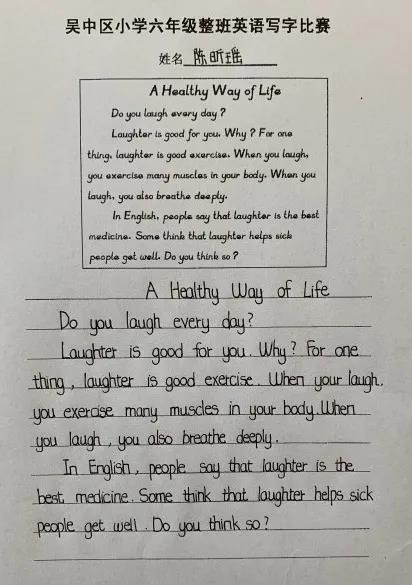 吴中区小学六年级整班英语写字比赛
姓名 陈昕瑶
A Healthy Way of Life
Do you laugh every day?
Laughter is good for you. Why? For one
thing, laughter is good exercise. When you laugh,
you exercise many muscles in your body. When you
laugh, you also breathe deeply.
In English, people say that laughter is the best
medicine. Some think that laughter helps sick
people get well. Do you think so?
A Healthy Way of Life
Do you laugh every day?
Laughter is good for you. Why? For one
thing, laughter is good exercise. When your laugh.
you exercise many muscles in your body. When
you laugh, you also breathe deeply.
In English, people say that laughter is the
best medicine. Some think that laughter helps sick
people get well. Do you think so?